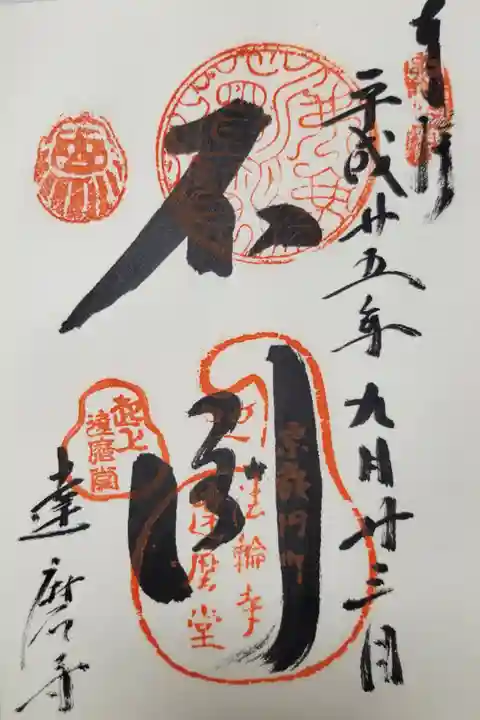 奉拝
平成廿五年九月廿三日
不倒
達磨寺
起上
達磨堂
京都円町
法輪寺
達磨堂